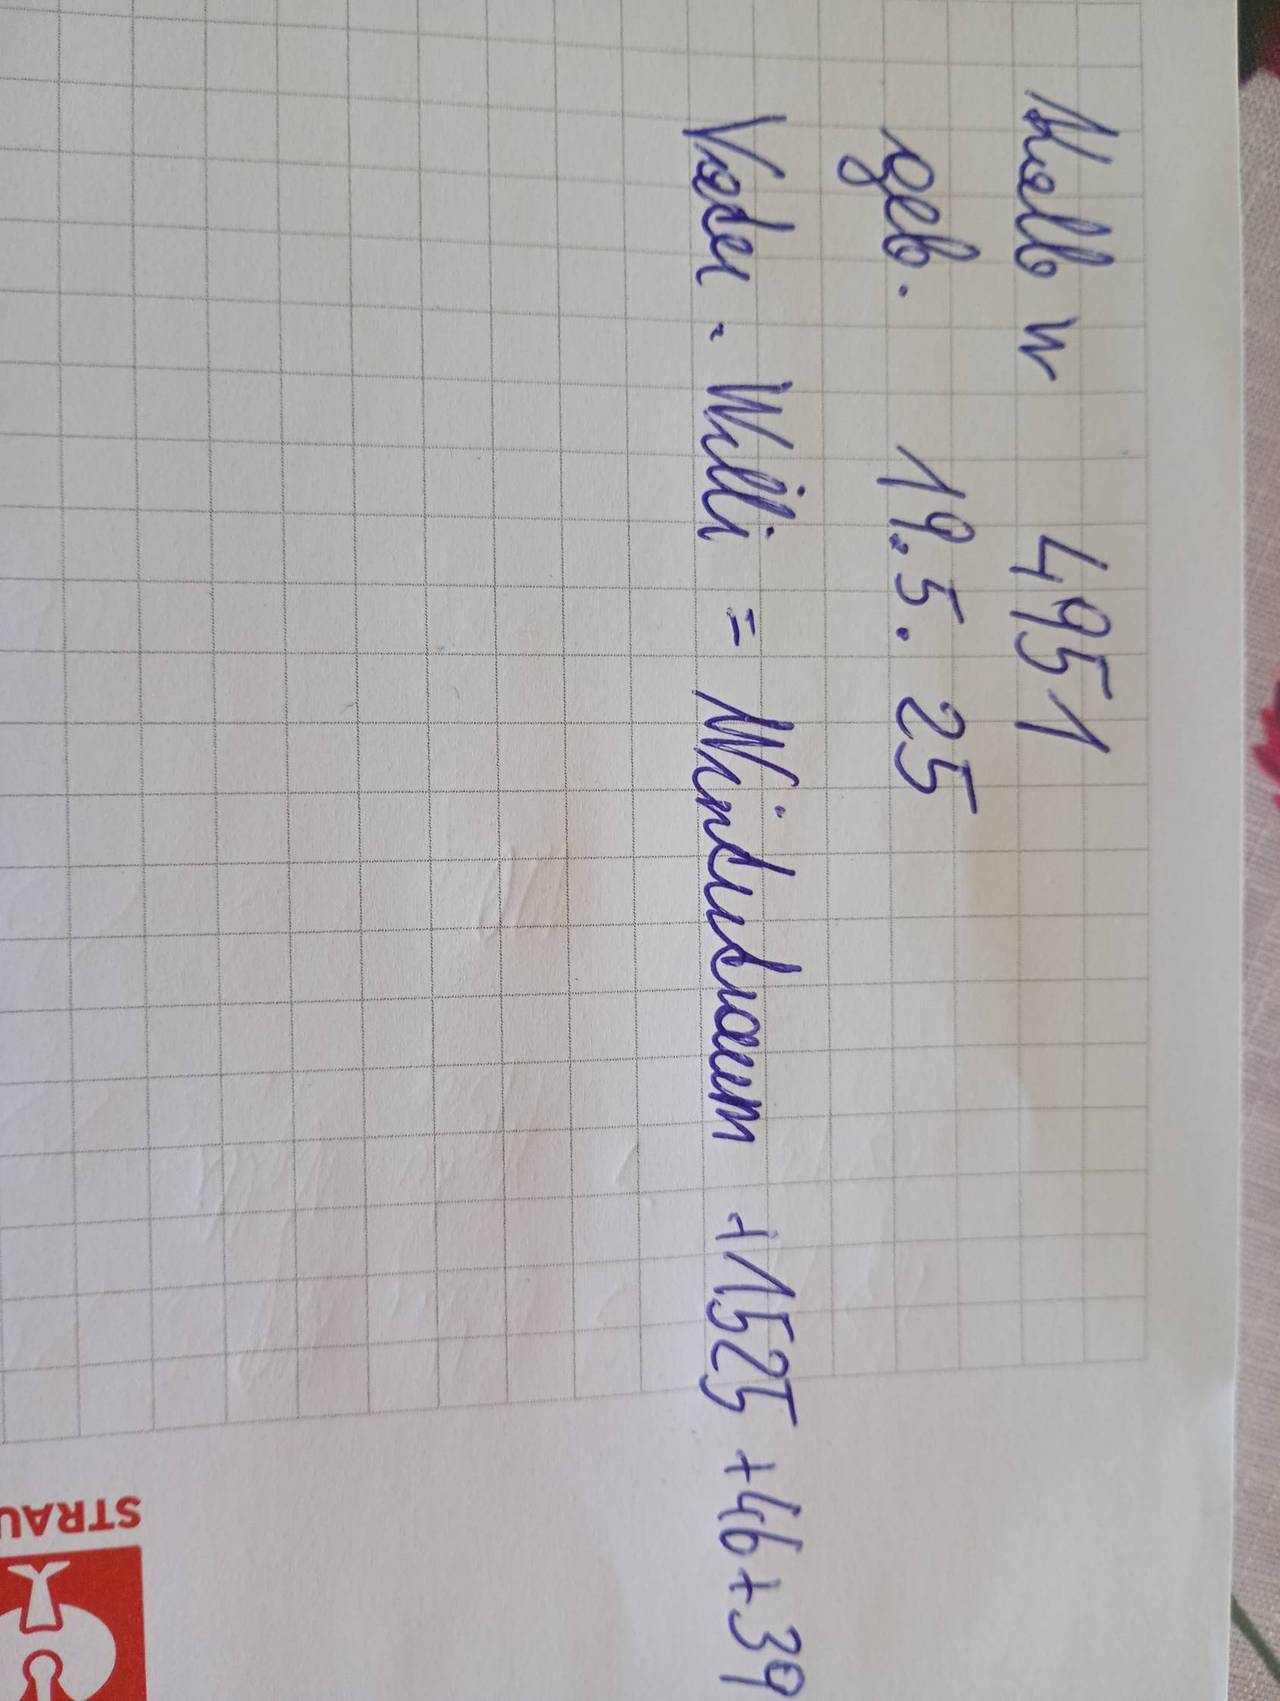 Kalb w 4951
geb. 19.5.25
Vader. Willi = Windudraum +1525 +46+39
STRAU